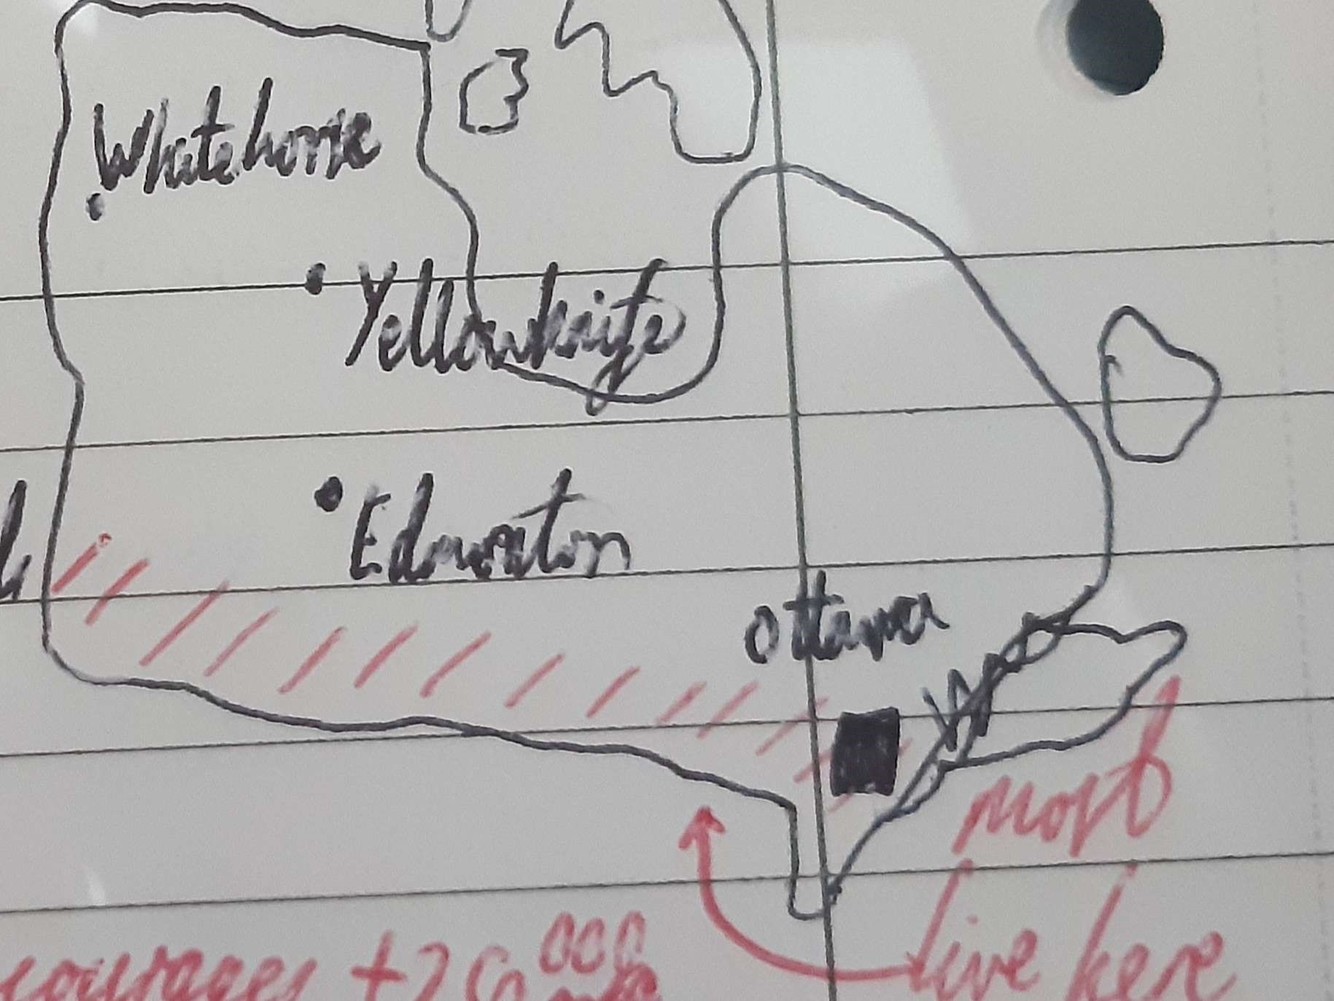 Whitehorse
Yellowknife
Edmonton
Ottawa
most
live here